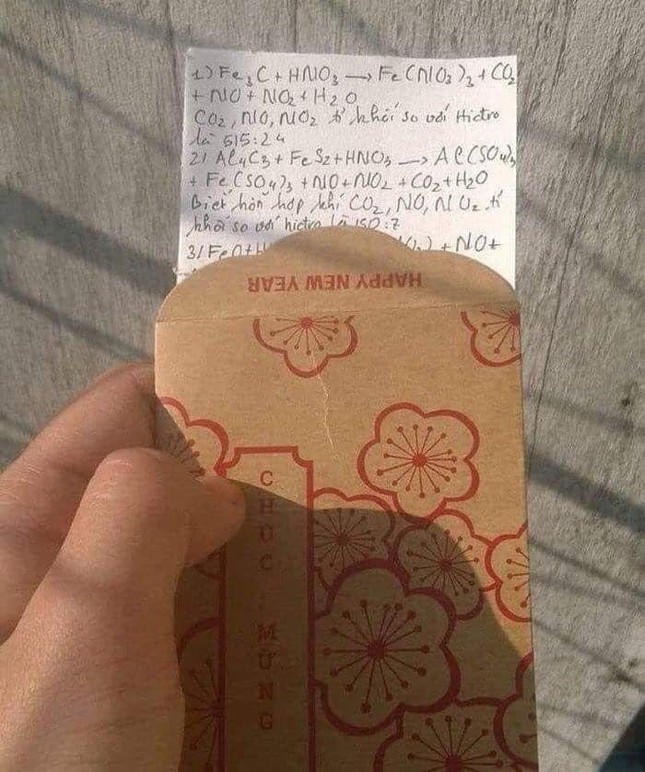 1) Fe3C + HNO3 → Fe(NO3)3 + CO2
+ NO + NO2 + H2O
CO2, NO, NO2 tỉ khối so với Hiđro
là 515:24
2) Al4C3 + FeS2 + HNO3 → Al(SO4)3
+ Fe(SO4)3 + NO + NO2 + CO2 + H2O
Biết hỗn hợp khí CO2, NO, NO2 tỉ
khối so với hiđro là 150:7
3) FeO + H ) + NO +
HAPPY NEW YEAR
CHÚC MỪNG